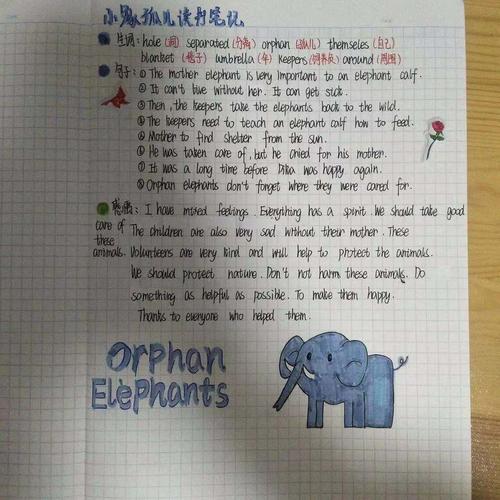 小象孤儿读书笔记
生词: hole (洞) separated (分离) orphan (孤儿) themseles (自己)
blanket (毯子) umbrella (伞) keepers (饲养员) around (周围)
句子: ① The mother elephant is very important to an elephant calf.
② It can't live without her. It can get sick.
③ Then, the keepers take the elephants back to the wild.
④ The keepers need to teach an elephant calf how to feed.
⑤ Mother to find shelter from the sun.
⑥ He was taken care of, but he cried for his mother.
⑦ It was a long time before Dika was happy again.
⑧ Orphan elephants don't forget where they were cared for.
感悟: I have mixed feelings. Everything has a spirit. We should take good
care of The children are also very sad without their mother. These
these
animals. Volunteers are very kind and will help to protect the animals.
We should protect nature. Don't not harm these animals. Do
something as helpful as possible. To make them happy.
Thanks to everyone who helped them.
Orphan
Elephants